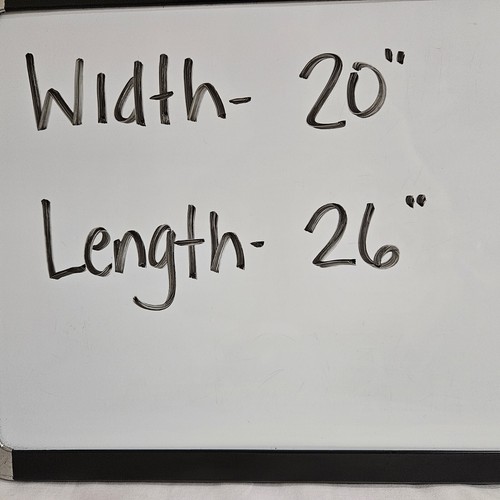 Width- 20"
Length- 26"